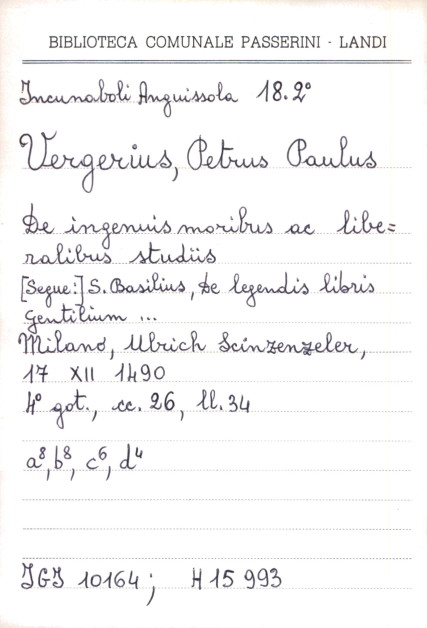 BIBLIOTECA COMUNALE PASSERINI - LANDI
Incunaboli Anguissola 18.2°
Vergerius, Petrus Paulus
De ingenuis moribus ac libe=
ralibus studiis
[Segue:] S. Basilius, De legendis libris
gentilium ...
Milano, Ulrich Scinzenzeler,
17 XII 1490
4° got., cc. 26, ll. 34
a⁸, b⁸, c⁶, d⁴
IGI 10164; H 15993